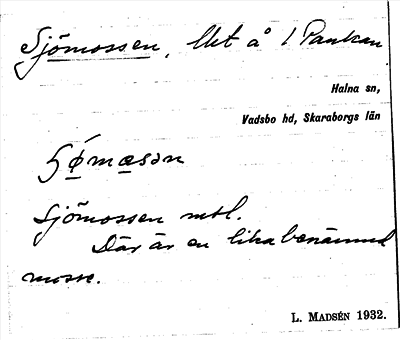 Sjömossen, Ukt å 1 Pankan
Halna sn,
Vadsbo hd, Skaraborgs län
ʃø̀mɑsən
Sjömossen mbl.
Där är en lika benämnd
mosse.
L. MADSÉN 1932.